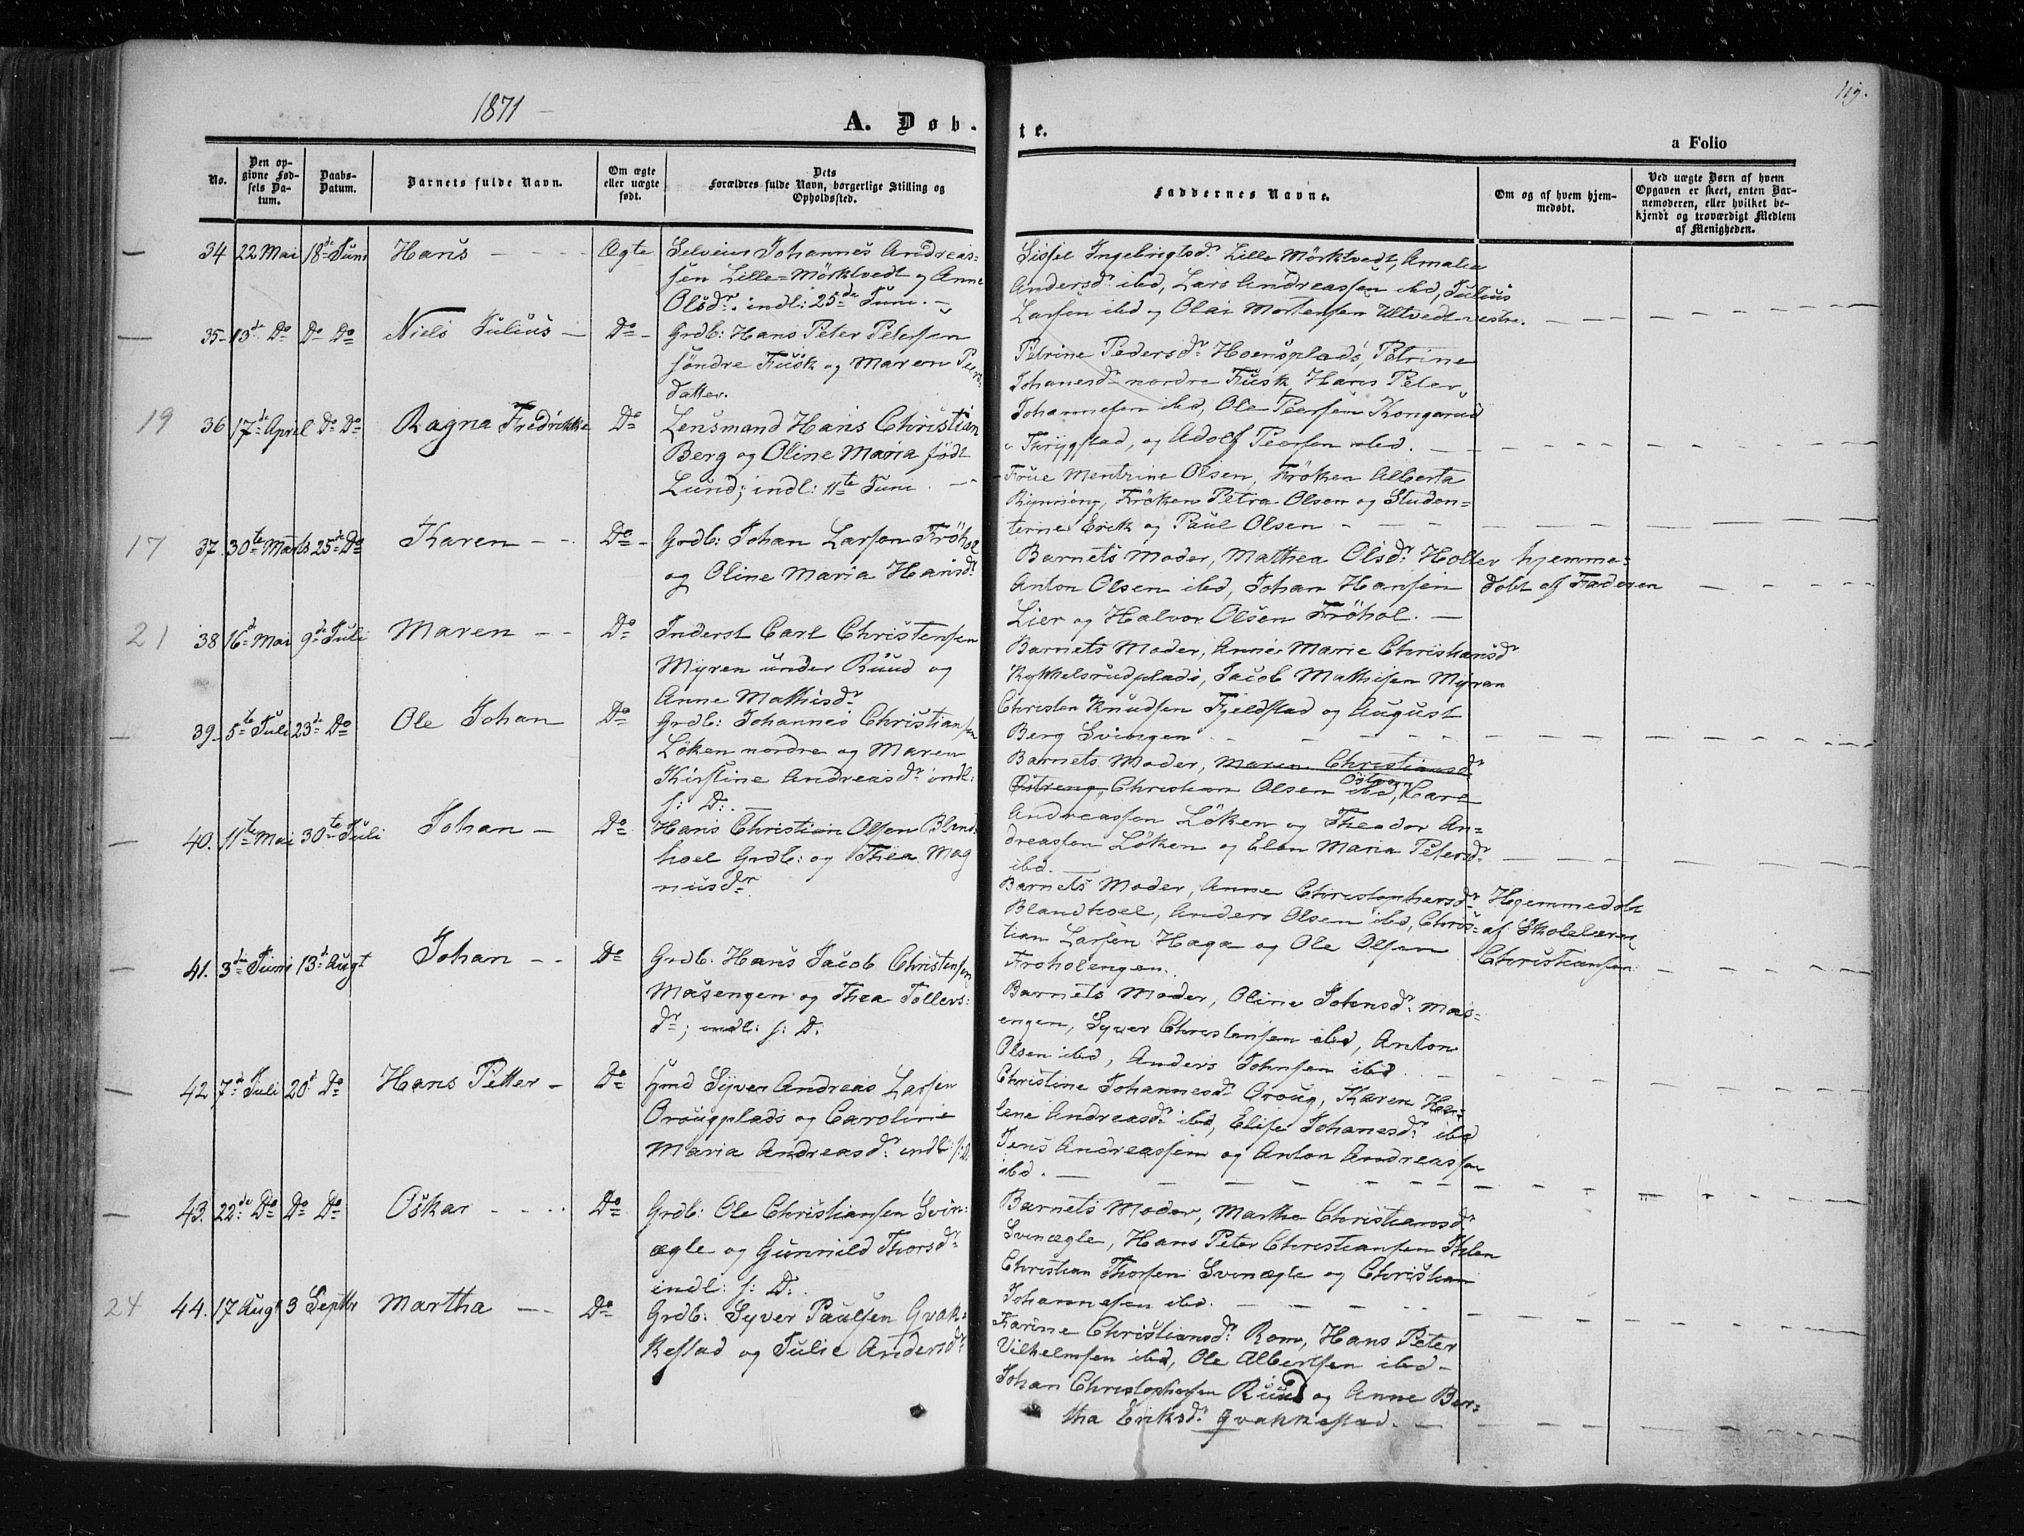 1871 -
119.
A. Døb-
te.
a Folio
No.
Den op-
givne Fød-
sels Da-
tum.
Daabs-
Datum.
Barnets fulde Navn.
Om ægte
eller uægte
født.
Dets
Forældres fulde Navn, borgerlige Stilling og
Opholdssted.
Faddernes Navne.
Om og af hvem hjem-
medøbt.
Ved uægte Børn af hvem
Opgaven er skeet, enten Bar-
nemoderen, eller hvilket be-
kjendt og troværdigt Medlem
af Menigheden.
34 22 Mai 18de Juni Hans - - - - Ægte
Selveier Johannes Andreas-
sen Lille=Mörktvedt og Anne
Olsdr. indl: 25de Juni. -
Sissel Ingebrigtsdr Lille Mörktvedt, Amalia
Andersdr ibd, Lars Andreassen ibd, Julius
Larsen ibd og Olai Mortensen Utvedt vestre.
35 13de Do Do Do Niels Julius - Do -
Grdb: Hans Peter Petersen
söndre Fusk og Maren Peers
datter.
Petrine Pedersdr Hoensplads, Petrine
Johanesdr nordre Fusk, Hans Peter
Johannesen ibd, Ole Peersen Kongsrud
i Thrygstad, og Adolf Peersen ibd.
19 36 17de April Do Do Ragna Fredrikke Do
Lensmand Hans Christian
Berg og Oline Maria födt
Lund; indl: 11te Juni.
Frue Mentzine Olsen, Fröken Alberta
Fröken Petra Olsen og Studen-
terne Erik og Paul Olsen
17 37. 30te Marts 25de Do Karen - - Do -
Grdb: Johan Larsen Fröhol
og Oline Maria Hansdr
Barnets Moder, Mathea Olsdr Holter
Anton Olsen ibd, Johan Hansen
Lier og Halvor Olsen Fröhol. -
hjemme-
döbt af Faderen
21 38 16de Mai 9de Juli Maren - - Do
Inderst Carl Christensen
Myren under Ruud og
Anne Mathisdr
Barnets Moder, Anne Marie Christiansdr
Kykkelsrudplads, Jacob Mathisen Myren
Christen Knudsen Fjeldstad og August
Berg Svingen
39. 5te Juli 23de Do Ole Johan Do
Grdb: Johannes Christiansen
Löken nordre og Maren
Kirstine Andreasdr indl:
s: D:
Barnets Moder, Maren Christiansdr
Östreng, Christian Olsen ibd, Karl
Andreassen Löken og Theodor An-
dreassen Löken og Elen Maria Petersdr
ibd. -
40. 11te Mai 30te Juli Johan - Do
Hans Christian Olsen Bland-
hoel Grdb: og Thea Mag
nusdr
Barnets Moder, Anne Christophersdr
Blandhoel, Anders Olsen ibd, Chris-
tian Larsen Haga og Ole Olsen
Froholengen.
Hjemmedöbt
af Skolelærer
Christiansen
41. 3de Juni 13de Augt Johan - - Do
Grdb. Hans Jacob Christensen
Masengen og Thea Tollers-
dr; indl: s: D:
Barnets Moder, Oline Johnsdr Mas-
engen, Syver Christensen ibd, Anton
Olsen ibd, Anders Johnsen ibd
42 7de Juli 20de Do Hans Petter - Do
Hmd Syver Andreas Larsen
Orougplads og Caroline
Maria Andreasdr indl: s: D.
Christine Johannesdr Oroug, Karen Hen-
lene Andreasdr ibd, Elise Johanesdr ibd
Jens Andreassen og Anton Andreassen
ibd. -
43. 22de Do Do Do Oskar - - - Do
Grdb: Ole Christiansen Svin-
ægle og Gunnild Thorsdr
indl: s: D:
Barnets Moder, Marthe Christiansdr
Svinægle, Hans Peter Christiansen Ihlen
Christian Thorsen Svinægle og Christian
Johannesen ibd.
24 44. 17 Augt 3 Septbr Martha - - Do
Grdb: Syver Paulsen Gvak-
kestad og Julie Andersdr
Karine Christiansdr Rom, Hans Peter
Vilhelmsen ibd, Ole Albertsen ibd -
Johan Christophersen Ruud og Anne Ber-
tha Eriksdr Gvakkestad. -